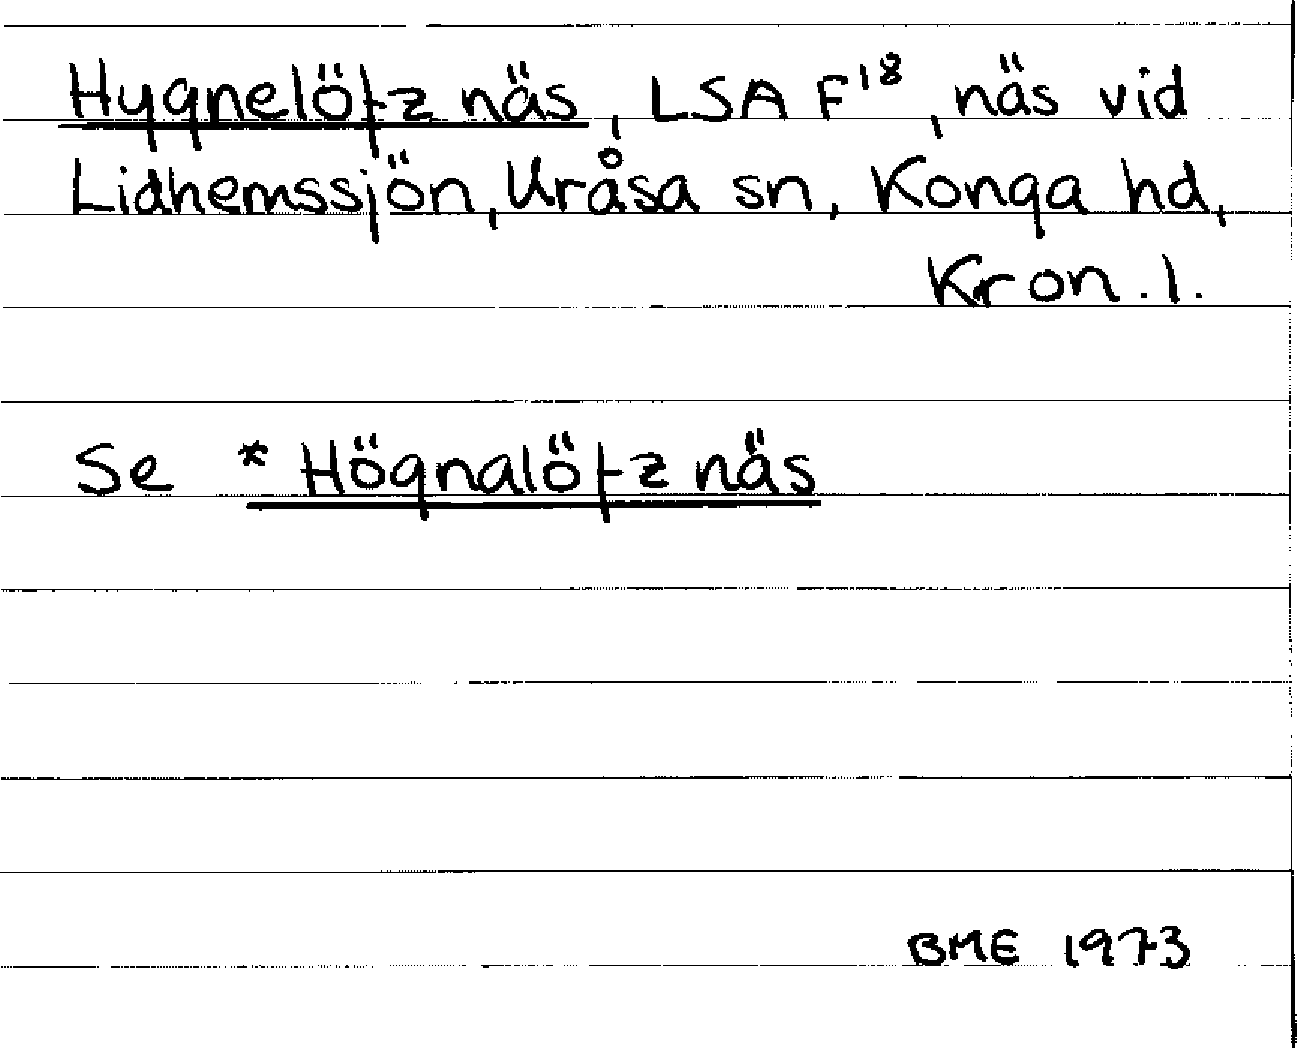 Hygnelötz näs, LSA F¹⁸, näs vid
Lidhemssjön, Uråsa sn, Konga hd,
Kron. l.
Se * Högnalötz näs
BME 1973